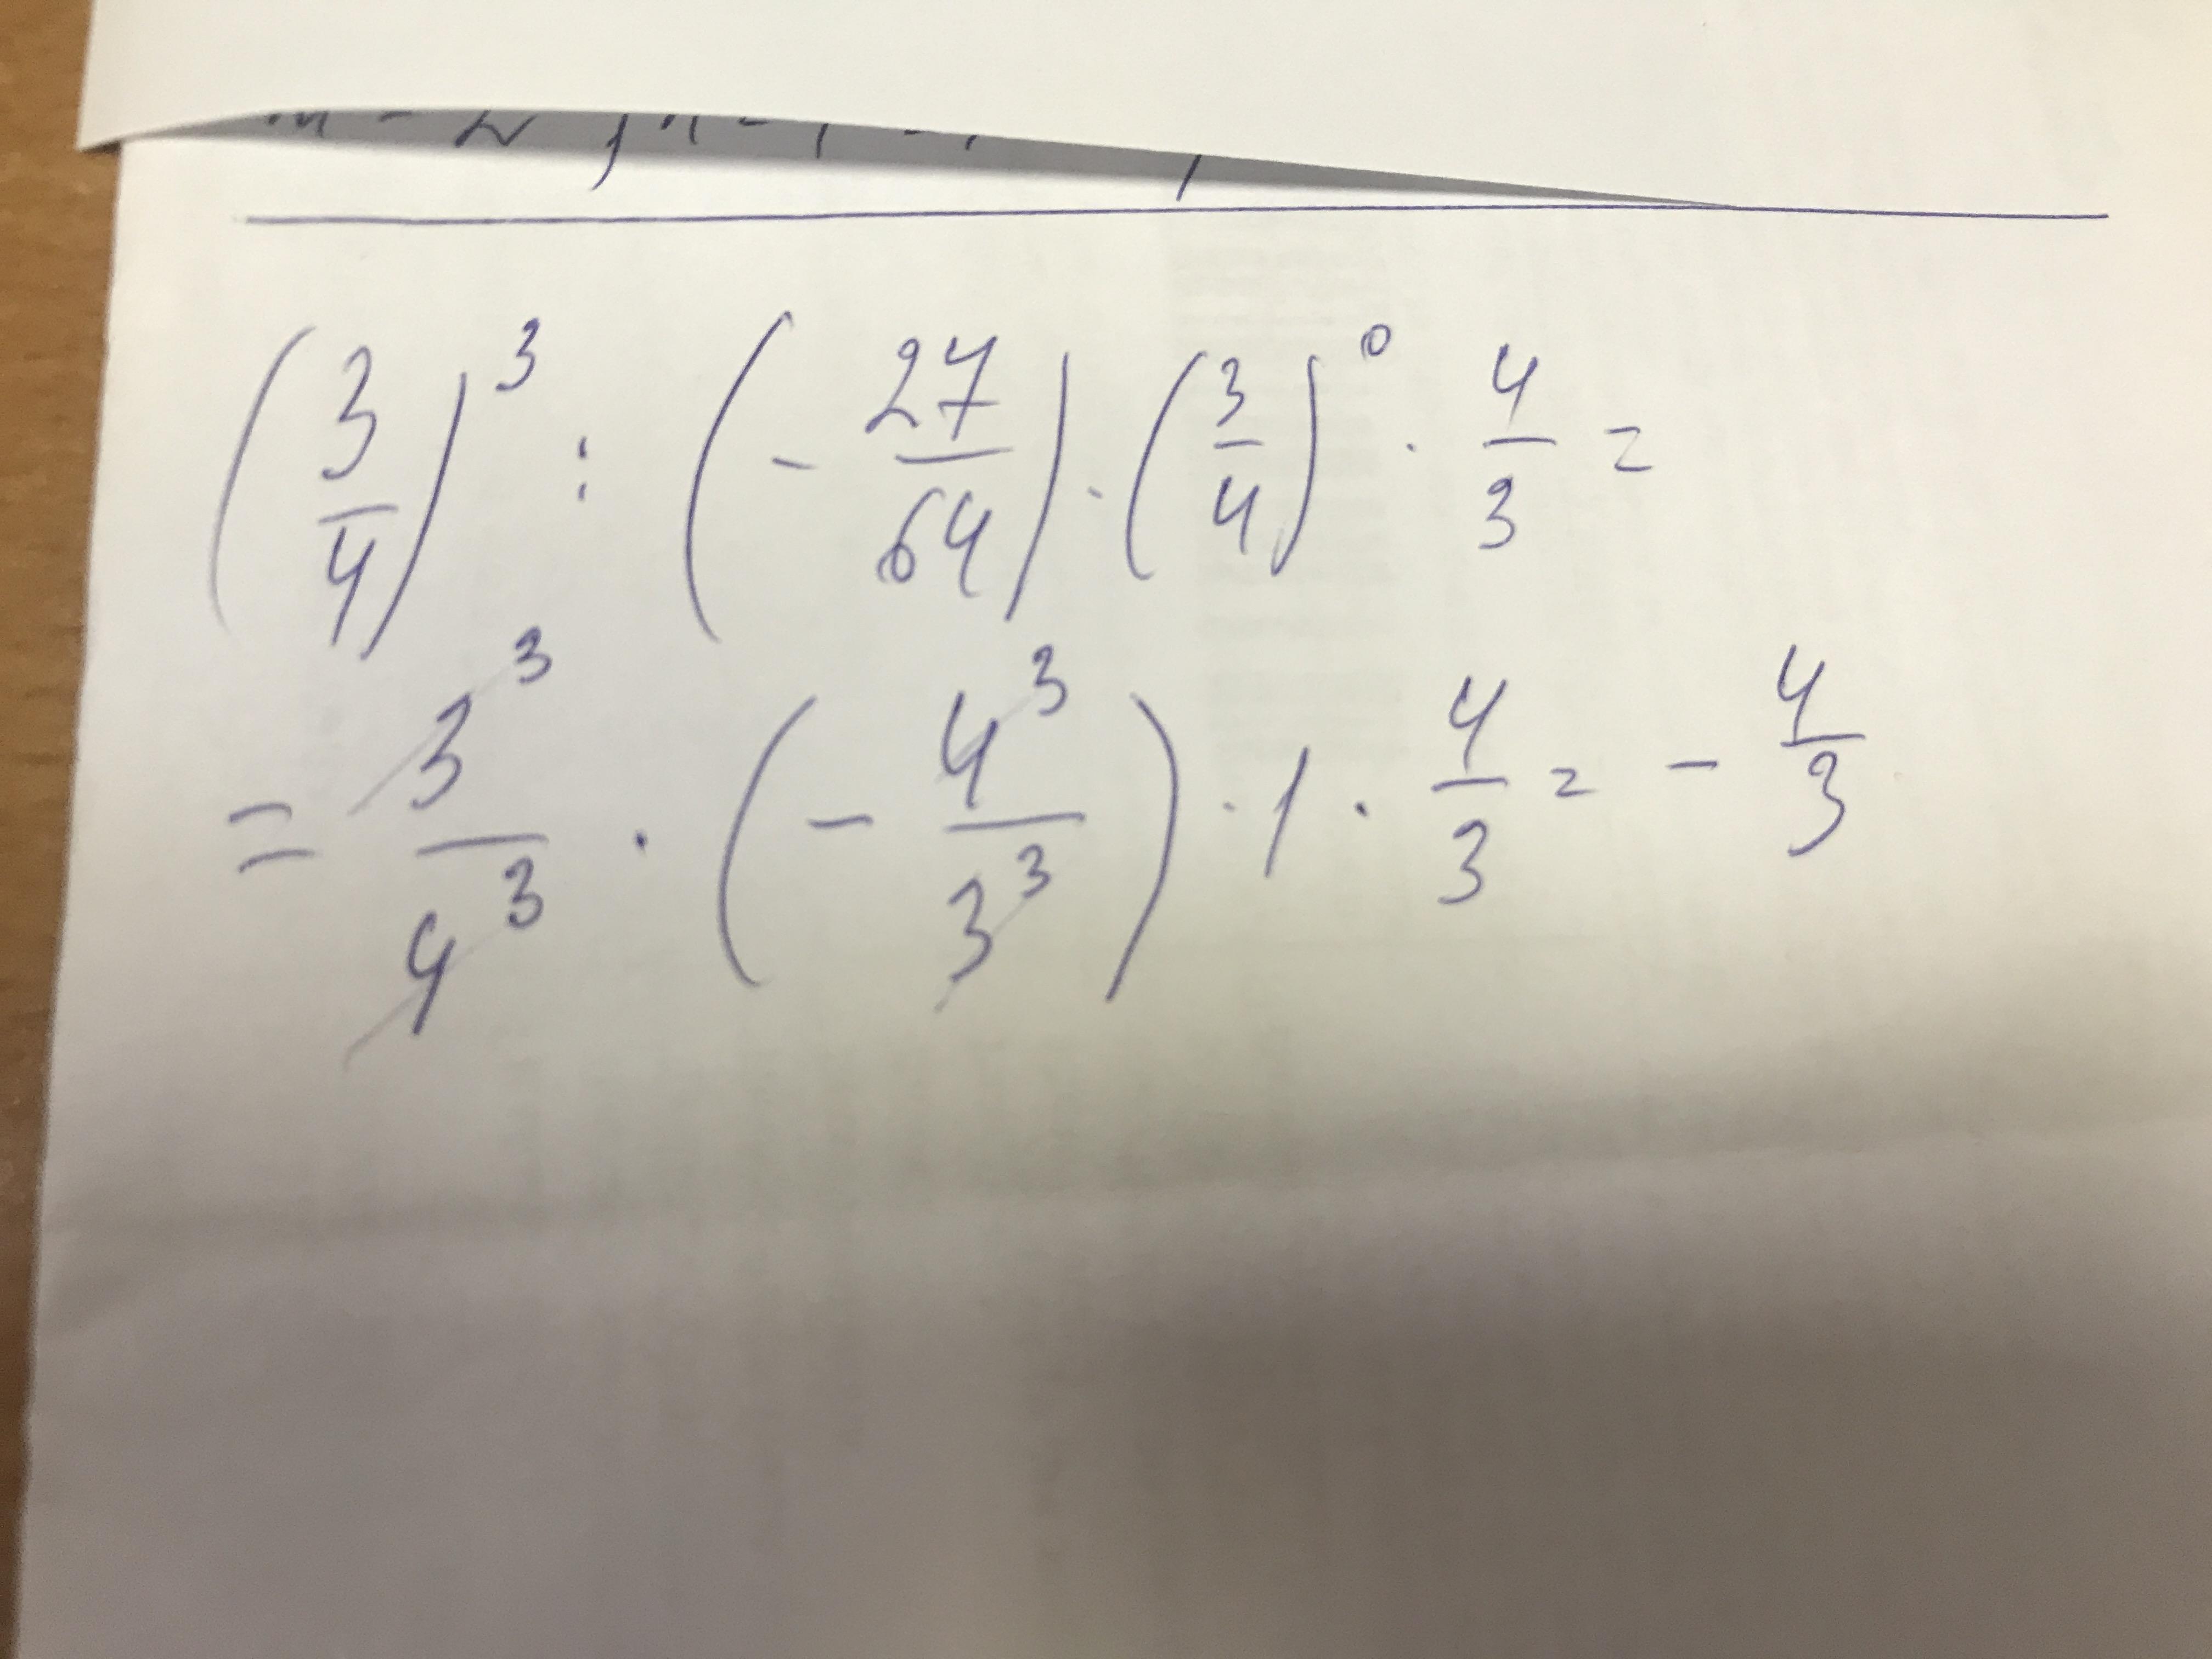 (3/4)³ : (- 27/64) · (3/4)⁰ · 4/3 =
= 3³/4³ · (- 4³/3³) · 1 · 4/3 = - 4/3